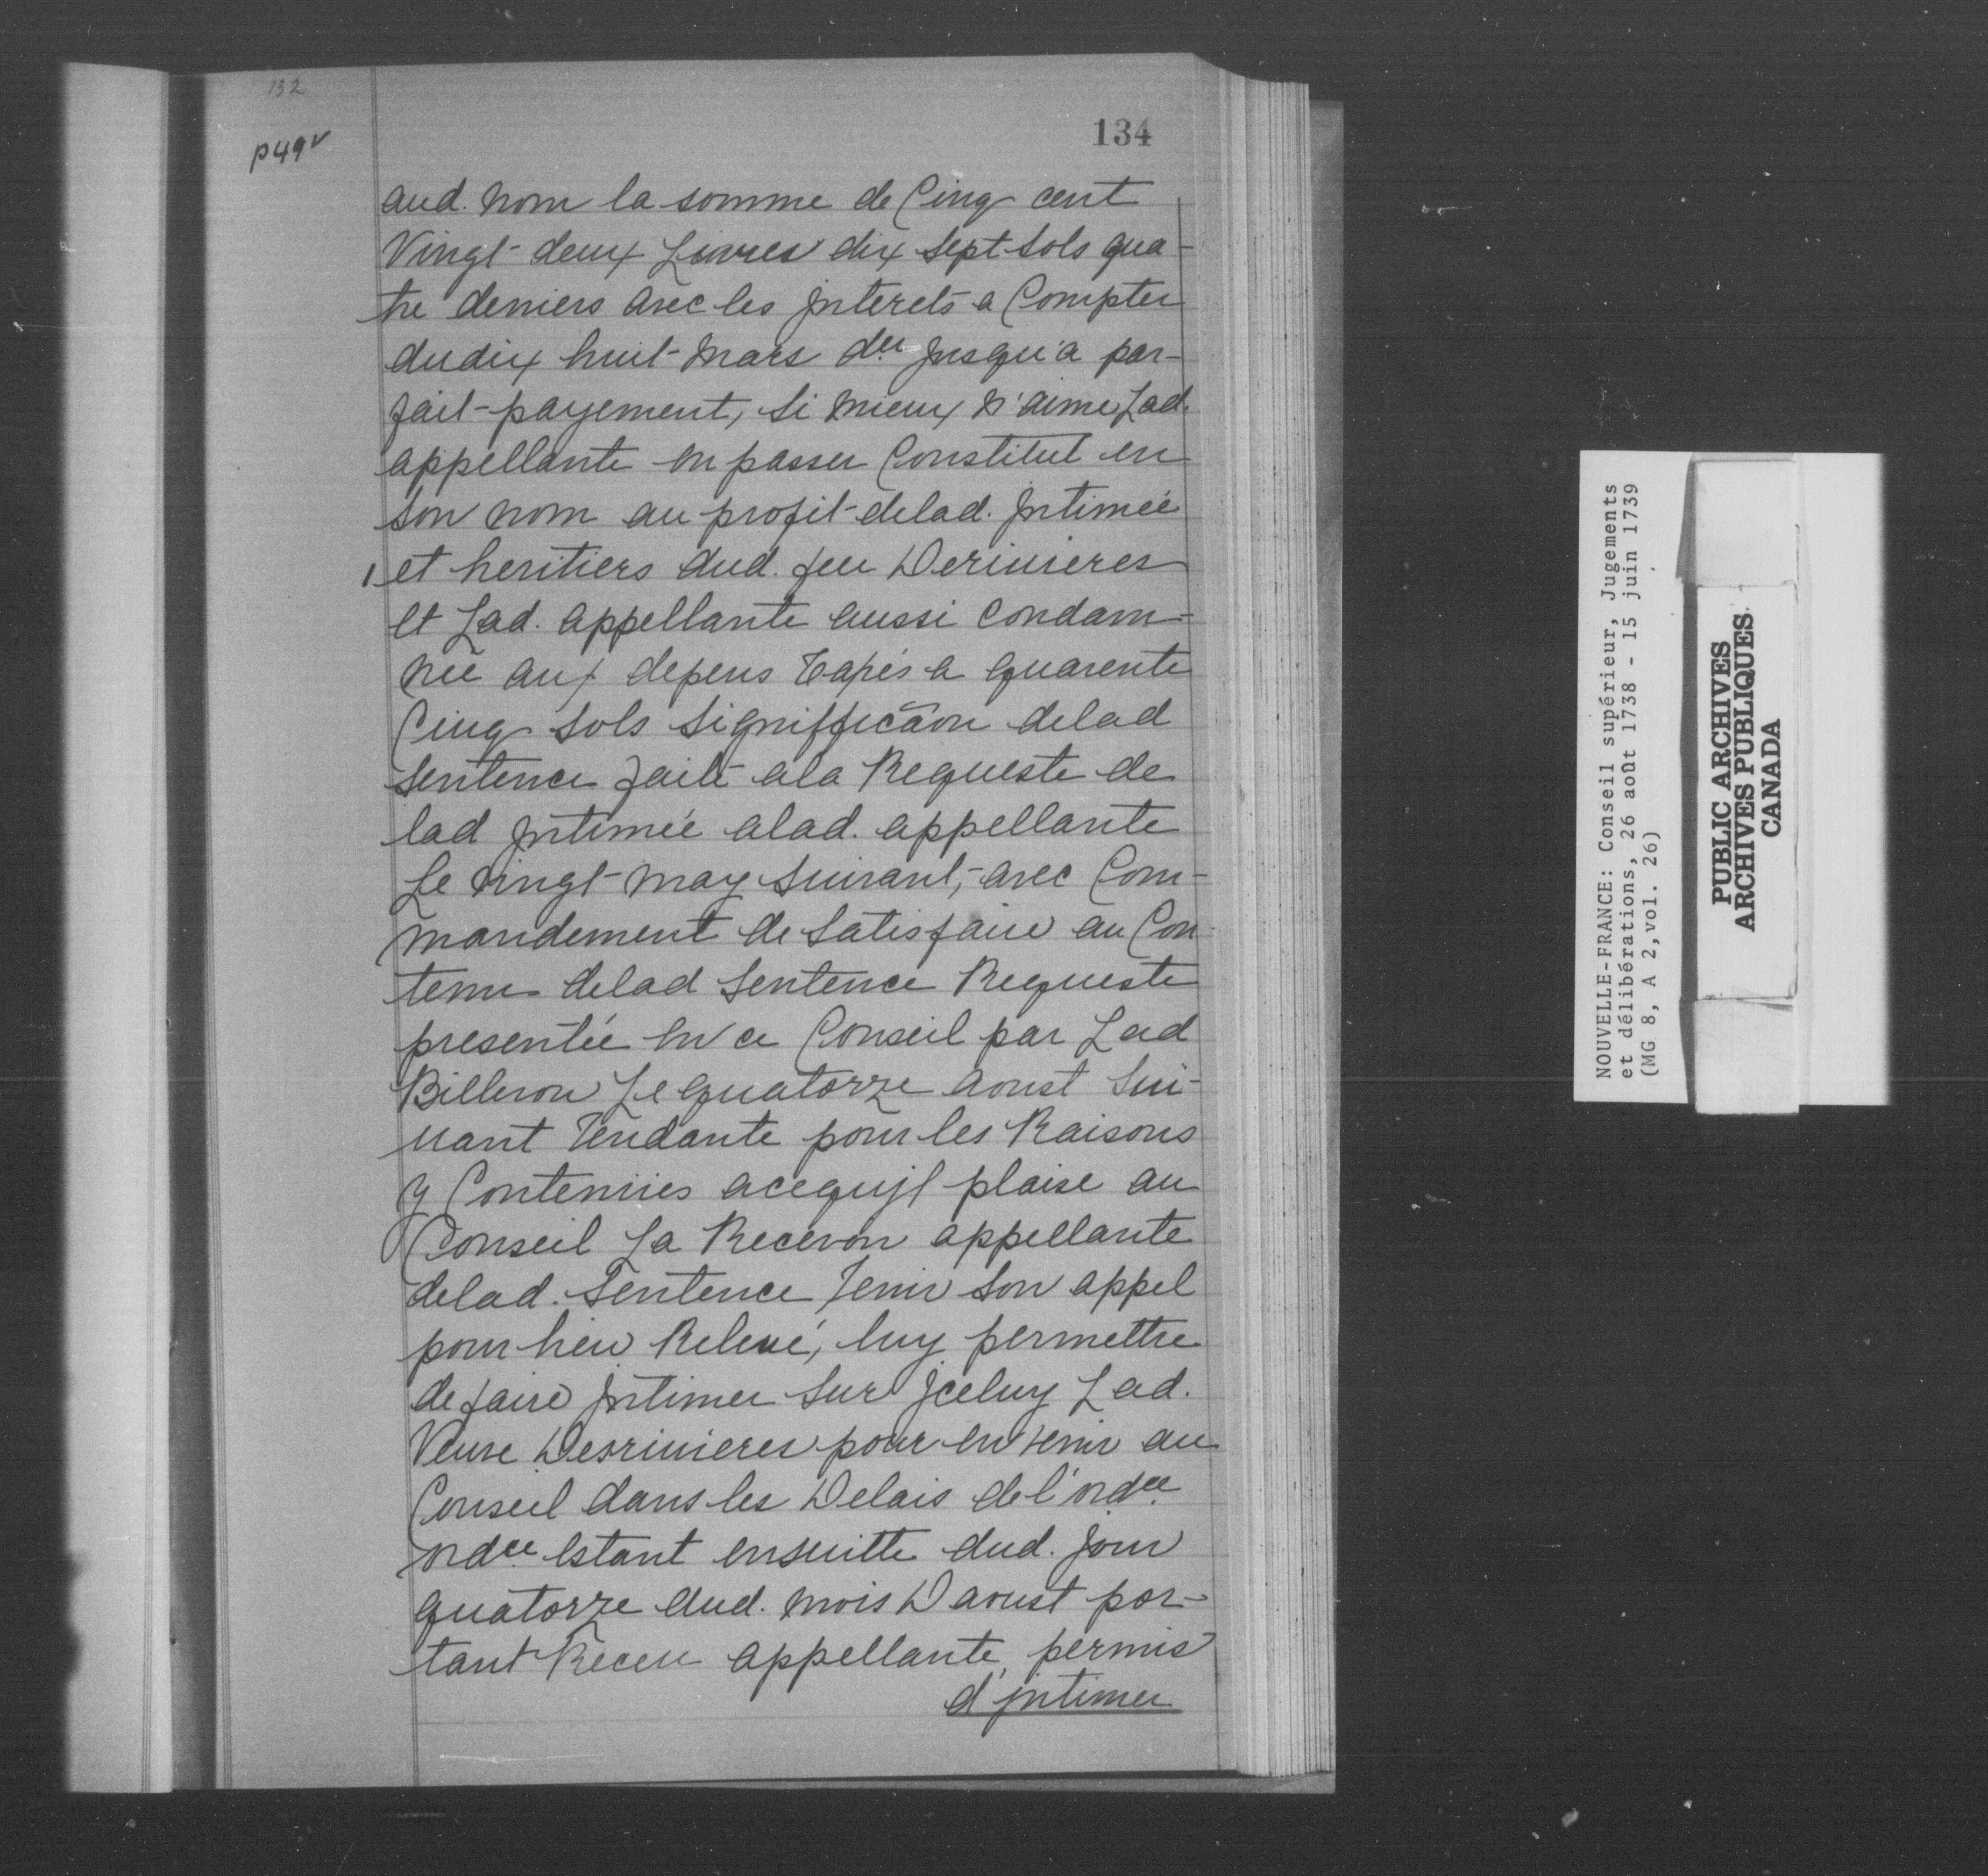 132
p49v
134
aud. nom la somme de Cinq cent
Vingt-deux Livres dix sept sols qua-
tre deniers avec les jnterets a Compter
dudix huit-mars der jusqu'a par-
fait-payement, si mieux n'aime Lad.
appellante en passer Constitut en
son nom au profit-delad. jntimée
et heritiers dud. feu Derivieres
et Lad. appellante aussi condam-
née aux depens Taxés a quarente
Cinq sols signiffica͠on delad
sentence faite ala Requeste de
lad jntimée alad. appellante
Le vingt-may suivant, avec Com-
mandement de satisfaire au Con-
tenu delad sentence Requeste
presentée en ce Conseil par Lad
Billeron Le quatorze aoust sui-
uant Tendante pour les Raisons
y Contenües acequjl plaise au
Conseil La Recevoir appellante
delad. Sentence Tenir son appel
pour bien Relevé, luy permettre
de faire jntimer sur jceluy Lad.
Veuve Desrivieres pour en venir au
Conseil dans les Delais de l'ordce
ordce Estant ensuitte dud. jour
quatorze dud. mois D'aoust por-
tant Receu appellante, permis
d'jntimer
NOUVELLE-FRANCE: Conseil supérieur, Jugements
et délibérations, 26 août 1738 - 15 juin 1739
(MG 8, A 2,vol. 26)
PUBLIC ARCHIVES
ARCHIVES PUBLIQUES
CANADA